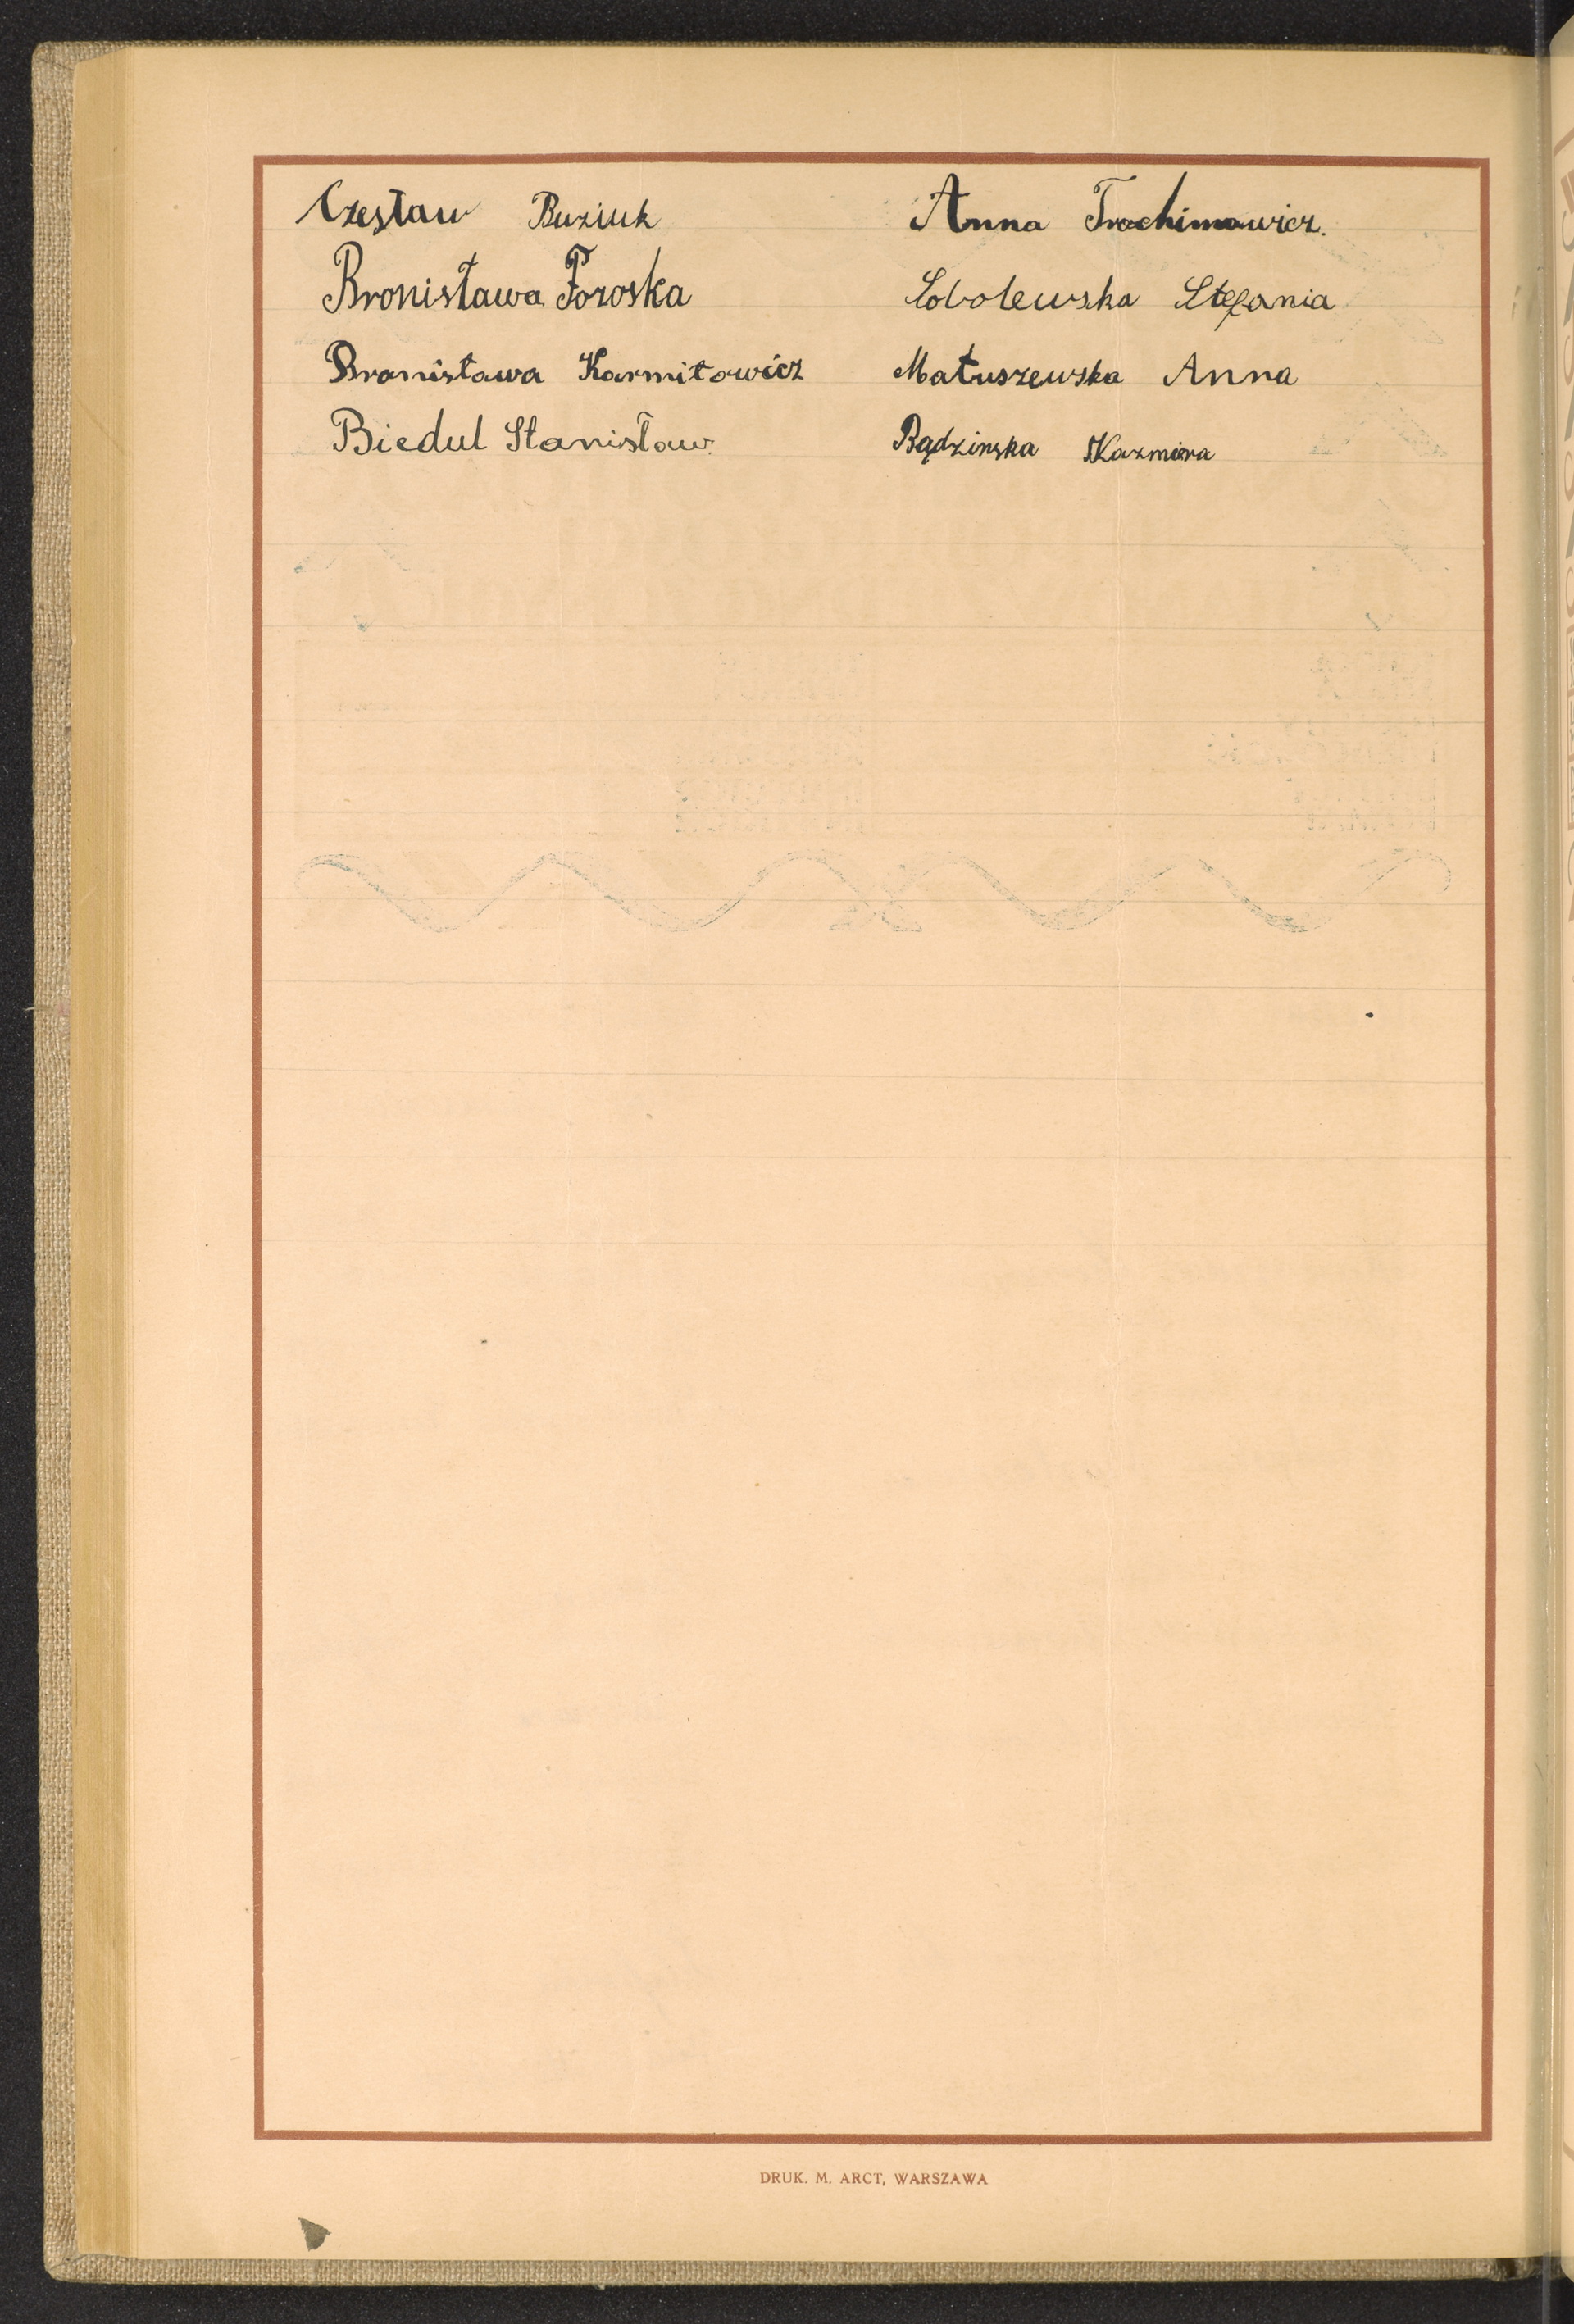 Czesław Buziuk
Bronisława Poroska
Bronisława Karmitowicz
Biedul Stanisław
Anna Trochimowicz.
Sobolewska Stefania
Matuszewska Anna
Bądzinska Kazmiera
DRUK. M. ARCT, WARSZAWA